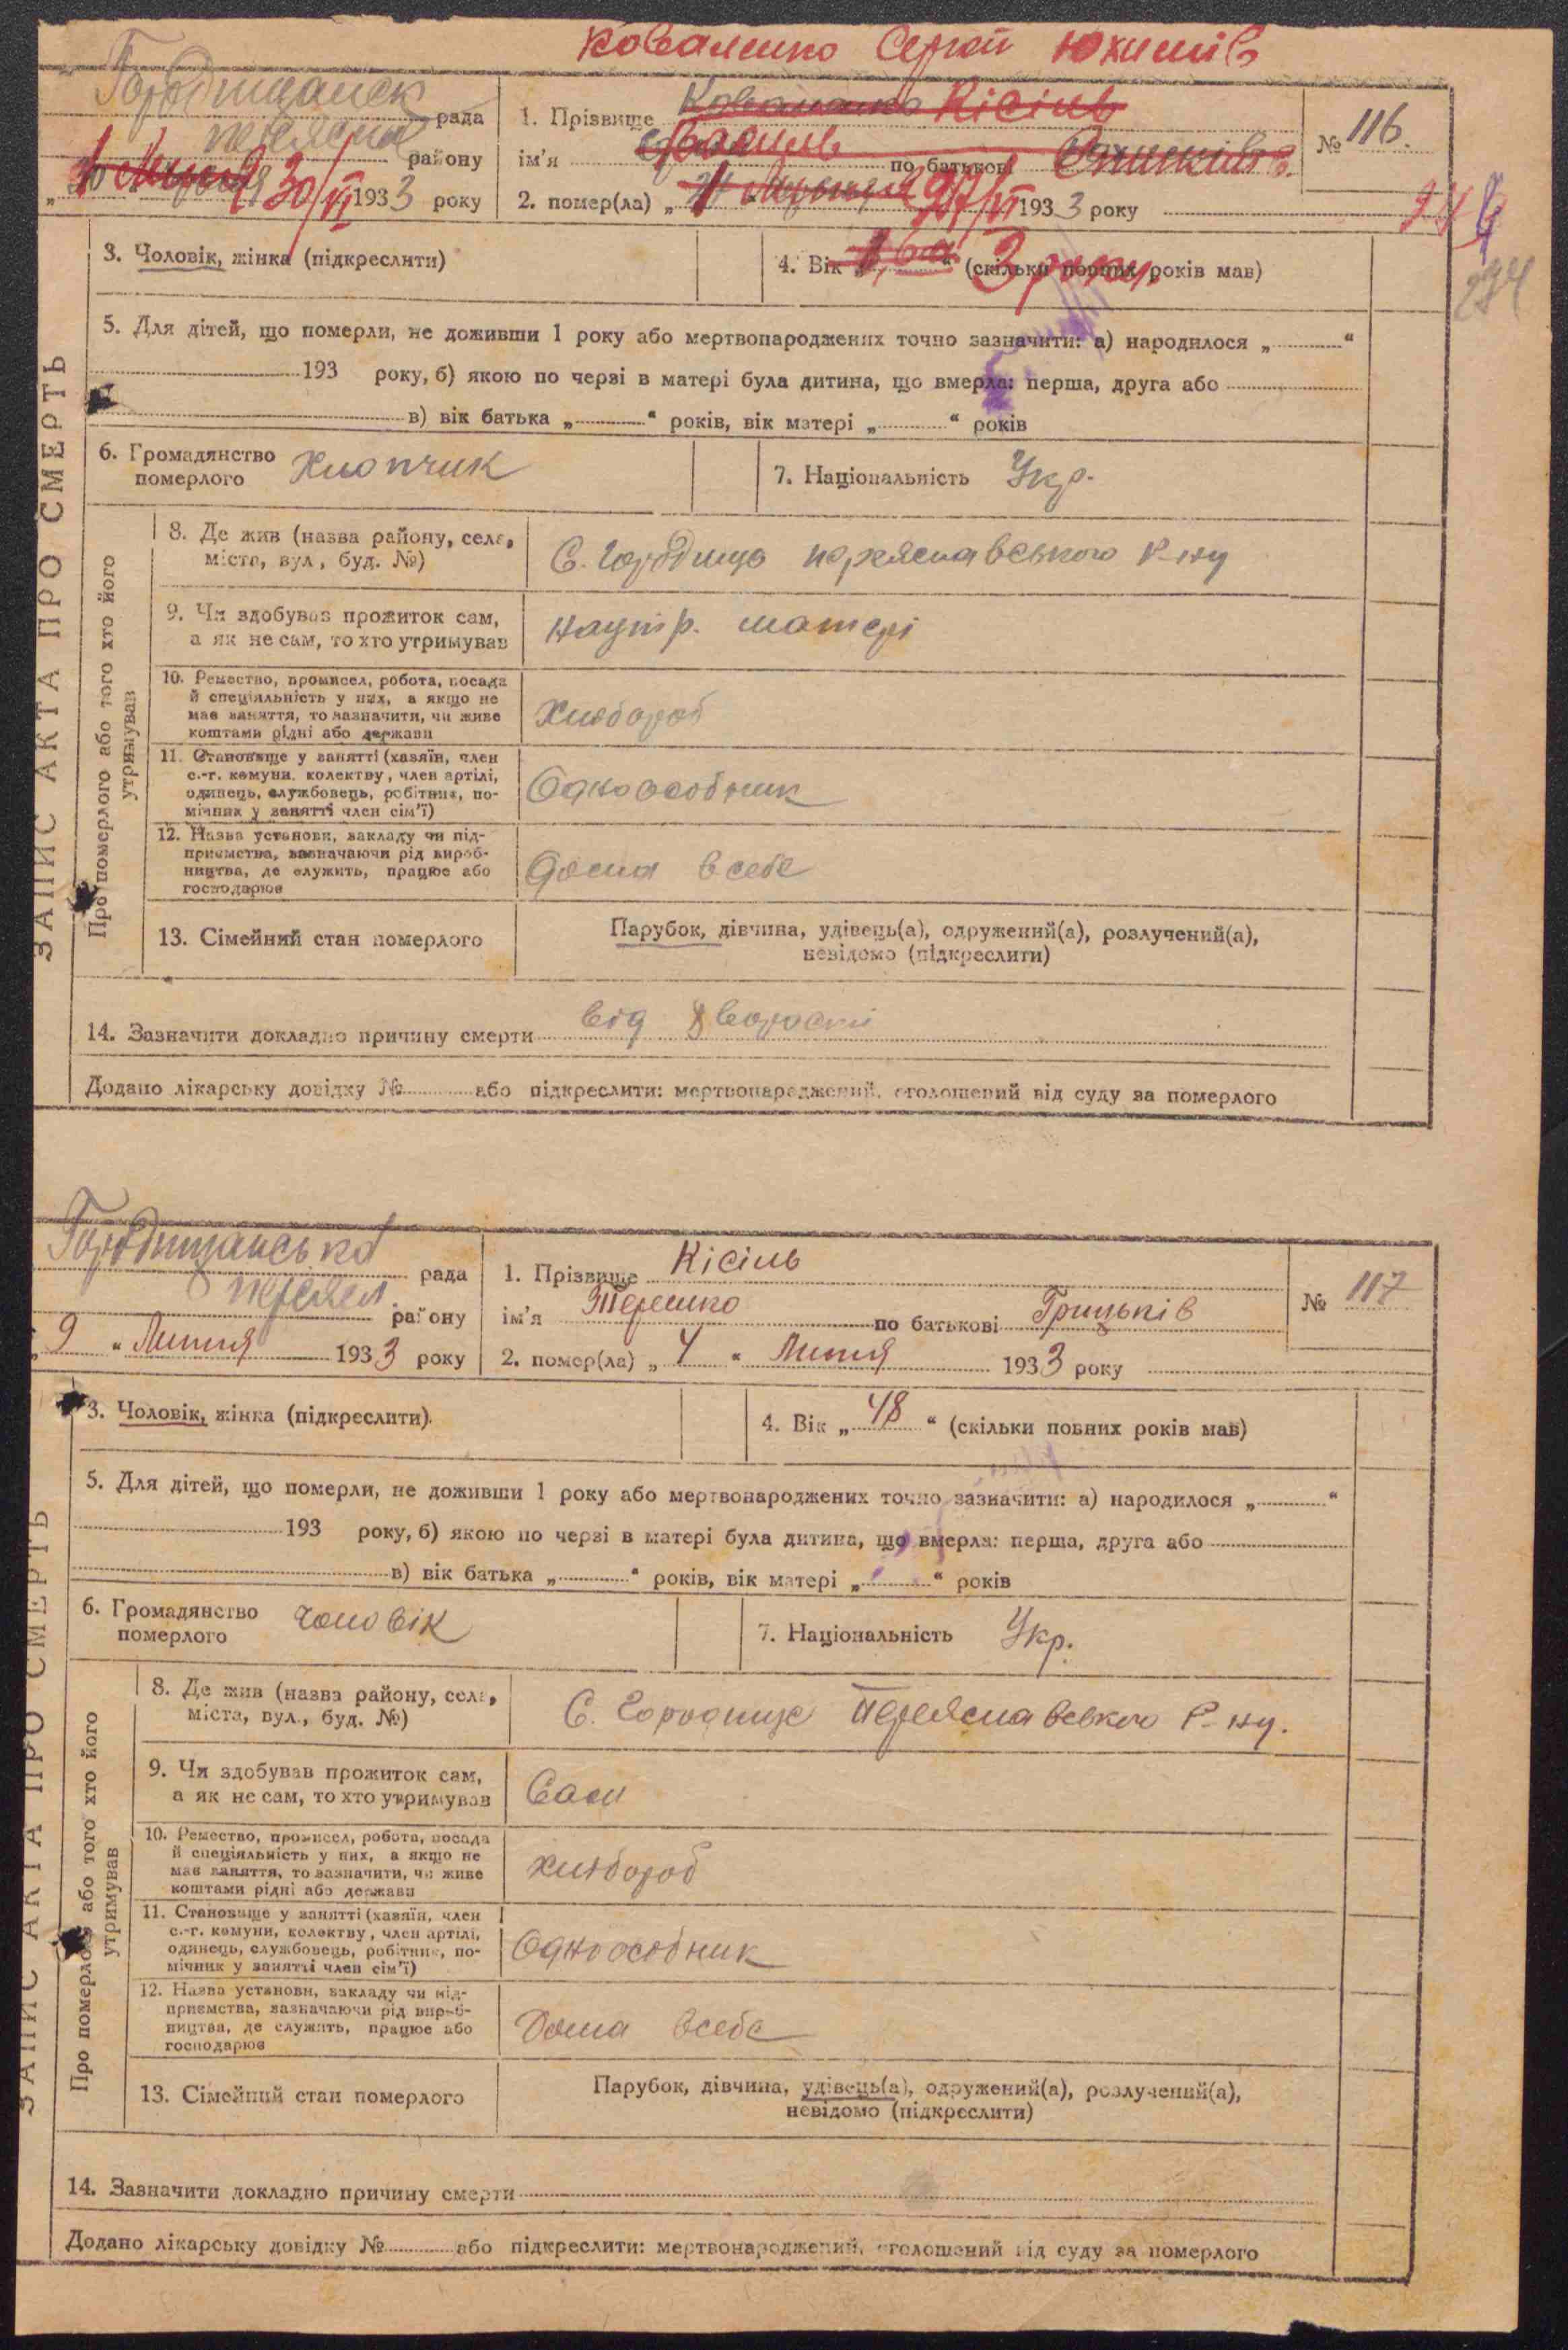 Коваленко Сергій Юхимів
Городищанськ рада
1. Прізвище Коваленко Кісіль
№ 116.
району
ім'я Василь по батькові
30/VI 1933 року
2. помер(ла) „ 1933 року
3. Чоловік, жінка (підкреслити)
4. Вік „ “ (скільки повних років мав) 3 роки
234
5. Для дітей, що померли, не доживши 1 року або мертвонароджених точно зазначити: а) народилося „ “
193 року, б) якою по черзі в матері була дитина, що вмерла: перша, друга або
в) вік батька „ “ років, вік матері „ “ років
6. Громадянство померлого Хлопчик
7. Національність Укр.
ЗАПИС АКТА ПРО СМЕРТЬ
Про померлого або того хто його утримував
8. Де жив (назва району, села, міста, вул., буд. №) С. Городище переяславського р-ну
9. Чи здобував прожиток сам, а як не сам, то хто утримував наутр. матері
10. Ремество, промисел, робота, посада й спеціяльність у них, а якщо не має заняття, то зазначити, чи живе коштами рідні або держави Хлібороб
11. Становище у занятті (хазяїн, член с.-г. комуни, колектву, член артілі, одинець, службовець, робітник, помічник у занятті член сім'ї) Одноособник
12. Назва установи, закладу чи підприємства, зазначаючи рід виробництва, де служить, працює або господарює Дома в себе
13. Сімейний стан померлого
Парубок, дівчина, удівець(а), одружений(а), розлучений(а), невідомо (підкреслити)
14. Зазначити докладно причину смерти від хворости
Додано лікарську довідку № або підкреслити: мертвонароджений, оголошений від суду за померлого
Городищанська рада
1. Прізвище Кісіль
№ 117
переял. району
ім'я Терешко по батькові Грицьків
„ 9 “ Липня 1933 року
2. помер(ла) „ 4 “ Липня 1933 року
3. Чоловік, жінка (підкреслити).
4. Вік „ 48 “ (скільки повних років мав)
5. Для дітей, що померли, не доживши 1 року або мертвонароджених точно зазначити: а) народилося „ “
193 року, б) якою по черзі в матері була дитина, що вмерла: перша, друга або
в) вік батька „ “ років, вік матері „ “ років
6. Громадянство померлого чоловік
7. Національність Укр.
ЗАПИС АКТА ПРО СМЕРТЬ
Про померлого або того хто його утримував
8. Де жив (назва району, села, міста, вул., буд. №) С. Городище Переяславского Р-ну.
9. Чи здобував прожиток сам, а як не сам, то хто утримував Сам
10. Ремество, промисел, робота, посада й спеціяльність у них, а якщо не має заняття, то зазначити, чи живе коштами рідні або держави хлібороб
11. Становище у занятті (хазяїн, член с.-г. комуни, колектву, член артілі, одинець, службовець, робітник, помічник у занятті член сім'ї) Одноособник
12. Назва установи, закладу чи підприємства, зазначаючи рід виробництва, де служить, працює або господарює Дома всебе
13. Сімейний стан померлого
Парубок, дівчина, удівець(а), одружений(а), розлучений(а), невідомо (підкреслити)
14. Зазначити докладно причину смерти
Додано лікарську довідку № або підкреслити: мертвонароджений, оголошений від суду за померлого